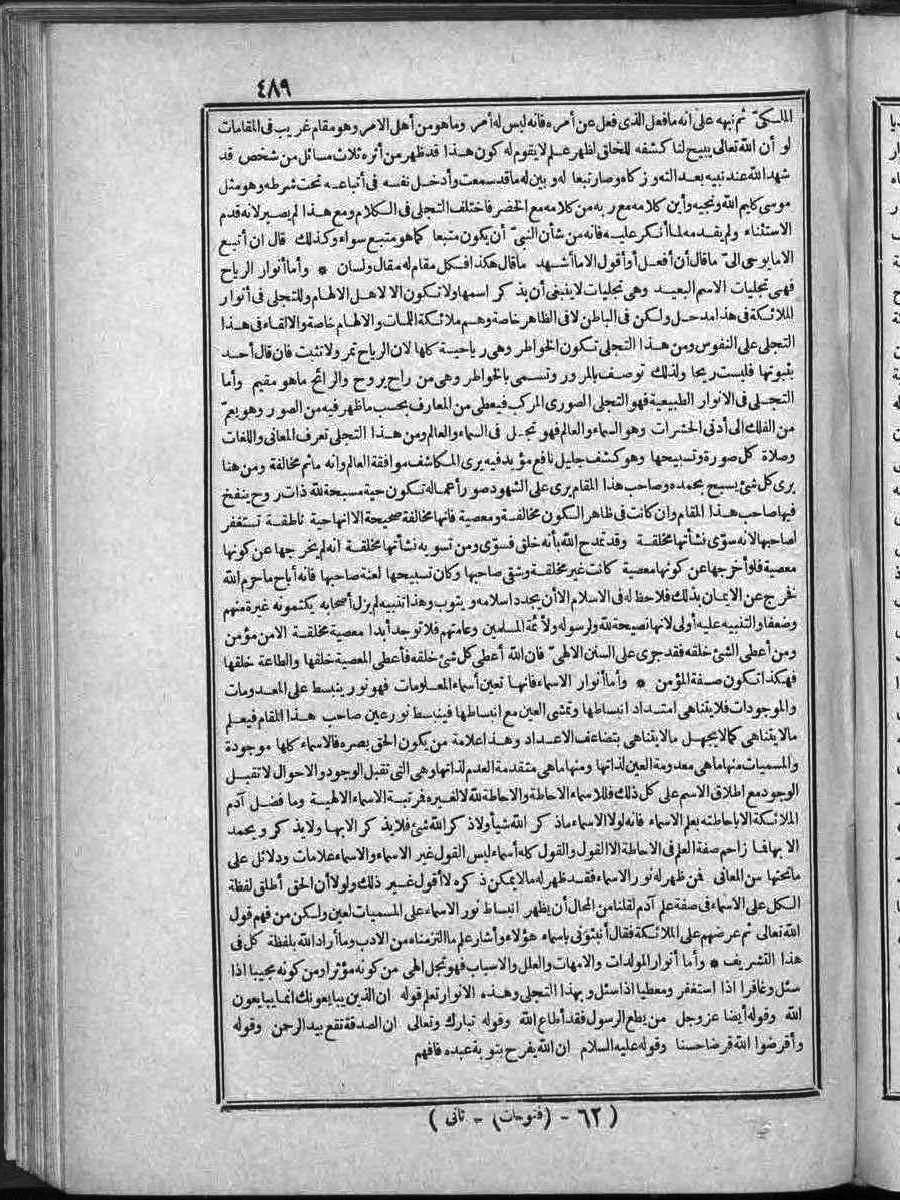 ٤٨٩
الملكىّ ثم نبهه على انه ما فعل الذى فعل عن أمره فانه ليس له أمر وما هو من أهل الامر وهو مقام غريب فى المقامات
لو أن الله تعالى يبيح لنا كشفه للخلق لظهر علم لا يقوم له كون هذا قد ظهر من أثره ثلاث مسائل من شخص قد
شهد الله عند نبيه بعدالته وزكاه وصار تبعا له وبين له ما قد سمعت وأدخل نفسه فى أتباعه تحت شرطه وهو مثل
موسى كليم الله ونجيه وأين كلامه مع ربه من كلامه مع الخضر فاختلف التجلى فى الكلام ومع هذا لم يصبر لانه قدم
الاستثناء ولم يقدمه لما أنكر عليه فانه من شأن النبىّ أن يكون متبعا كما هو متبع سواء وكذلك قال ان أتبع
الاما يوحى الىّ ما قال أن أفعل أو أقول الا ما أشهد ما قال هكذا فكل مقام له مقال ولسان * وأما أنوار الرياح
فهى تجليات الاسم البعيد وهى تجليات لا ينبغى أن يذكر اسمها ولا تكون الا لاهل الالهام وللتجلى فى أنوار
الملائكة فى هذا مدخل ولكن فى الباطن لا فى الظاهر خاصة وهم ملائكة اللمات والالهام خاصة والالقاء فى هذا
التجلى على النفوس ومن هذا التجلى تكون الخواطر وهى رياحية كلها لان الرياح تمر ولا تثبت فان قال أحد
بثبوتها فليست ريحا ولذلك توصف بالمرور وتسمى بالخواطر وهى من راح يروح والرائح ما هو مقيم وأما
التجلى فى الانوار الطبيعية فهو التجلى الصورى المركب فيعطى من المعارف بحسب ما ظهر فيه من الصور وهو يعمّ
من الفلك الى أدنى الحشرات وهو السماء والعالم فهو تجل فى السماء والعالم ومن هذا التجلى تعرف المعانى واللغات
وصلاة كل صورة وتسبيحها وهو كشف جليل نافع مؤيد فيه يرى المكاشف موافقة العالم وانه ما ثم مخالفة ومن هنا
يرى كل شئ يسبح بحمده وصاحب هذا المقام يرى على الشهود صور أعماله تكون حية مسبحة لله ذات روح ينفخ
فيها صاحب هذا المقام وان كانت فى ظاهر الكون مخالفة ومعصية فانها مخالفة صحيحة الا انها حية ناطقة تستغفر
لصاحبها لانه سوّى نشأتها مخلقة وقد تمدح الله بأنه خلق فسوّى ومن تسويه نشأتها مخلقة انه لم يخرجها عن كونها
معصية فلو أخرجها عن كونها معصية كانت غير مخلقة وشقى صاحبها وكان تسبيحها لعنة صاحبها فانه أباح ما حرم الله
نخرج عن الايمان بذلك فلاحظ له فى الاسلام الا أن يجدد اسلامه ويتوب وهذا تنبيه لم يزل أصحابه يكتمونه غيرة منهم
وضعفا والتنبيه عليه أولى لانها نصيحة لله ولرسوله ولأئمة المسلمين وعامتهم فلا توجد أبدا معصية مخلقة الامن مؤمن
ومن أعطى الشئ خلقه فقد جرى على السنن الالهىّ فان الله أعطى كل شئ خلقه فأعطى المعصية خلقها والطاعة خلقها
فهكذا تكون صفة المؤمن * وأما أنوار الاسماء فانها تعين أسماء المعلومات فهو نور ينبسط على المعدومات
والموجودات فلا يتناهى امتداد انبساطها وتمشى العين مع انبساطها فينبسط نور عين صاحب هذا المقام فيعلم
ما لا يتناهى كما لا يجهل ما لا يتناهى بتضاعف الاعداد وهذا علامة من يكون الحق بصره فالاسماء كلها موجودة
والمسميات منها ما هى معدومة العين لذاتها ومنها ما هى متقدمة العدم لذاتها وهى التى تقبل الوجود والاحوال لا تقبل
الوجود مع اطلاق الاسم على كل ذلك فللاسماء الاحاطة والاحاطة لله لا لغيره فرتبة الاسماء الالهية وما فضل آدم
الملائكة الا باحاطته بعلم الاسماء فانه لولا الاسماء ما ذكر الله شيأ ولا ذكر الله شئ فلا يذكر الابها ولا يذكر ويحمد
الا بها فما زاحم صفة العلم فى الاحاطة الا القول والقول كله أسماء ليس القول غير الاسماء والاسماء علامات ودلائل على
ما تحتها من المعانى فمن ظهر له نور الاسماء فقد ظهر له ما لا يمكن ذكره لا أقول غير ذلك ولولا أن الحق أطلق لفظة
الكل على الاسماء فى صفة علم آدم لقلنا من المحال أن يظهر انبساط نور الاسماء على المسميات لعين ولكن من فهم قول
الله تعالى ثم عرضهم على الملائكة فقال أنبئونى باسماء هؤلاء وأشار علم ما التزمناه من الادب وما أراد الله بلفظة كل فى
هذا التشريف * وأما أنوار المولدات والامهات والعلل والاسباب فهو تجل الهى من كونه مؤثرا ومن كونه مجيبا اذا
سئل وغافرا اذا استغفر ومعطيا اذا سئل وبهذا التجلى وهذه الانوار تعلم قوله ان الذين يبايعونك انما يبايعون
الله وقوله أيضا عز وجل من يطع الرسول فقد أطاع الله وقوله تبارك وتعالى ان الصدقة تقع بيد الرحمن وقوله
وأقرضوا الله قرضا حسنا وقوله عليه السلام ان الله يفرح بتوبة عبده فافهم
( ٦٢ - (فتوحات) - ثانى )